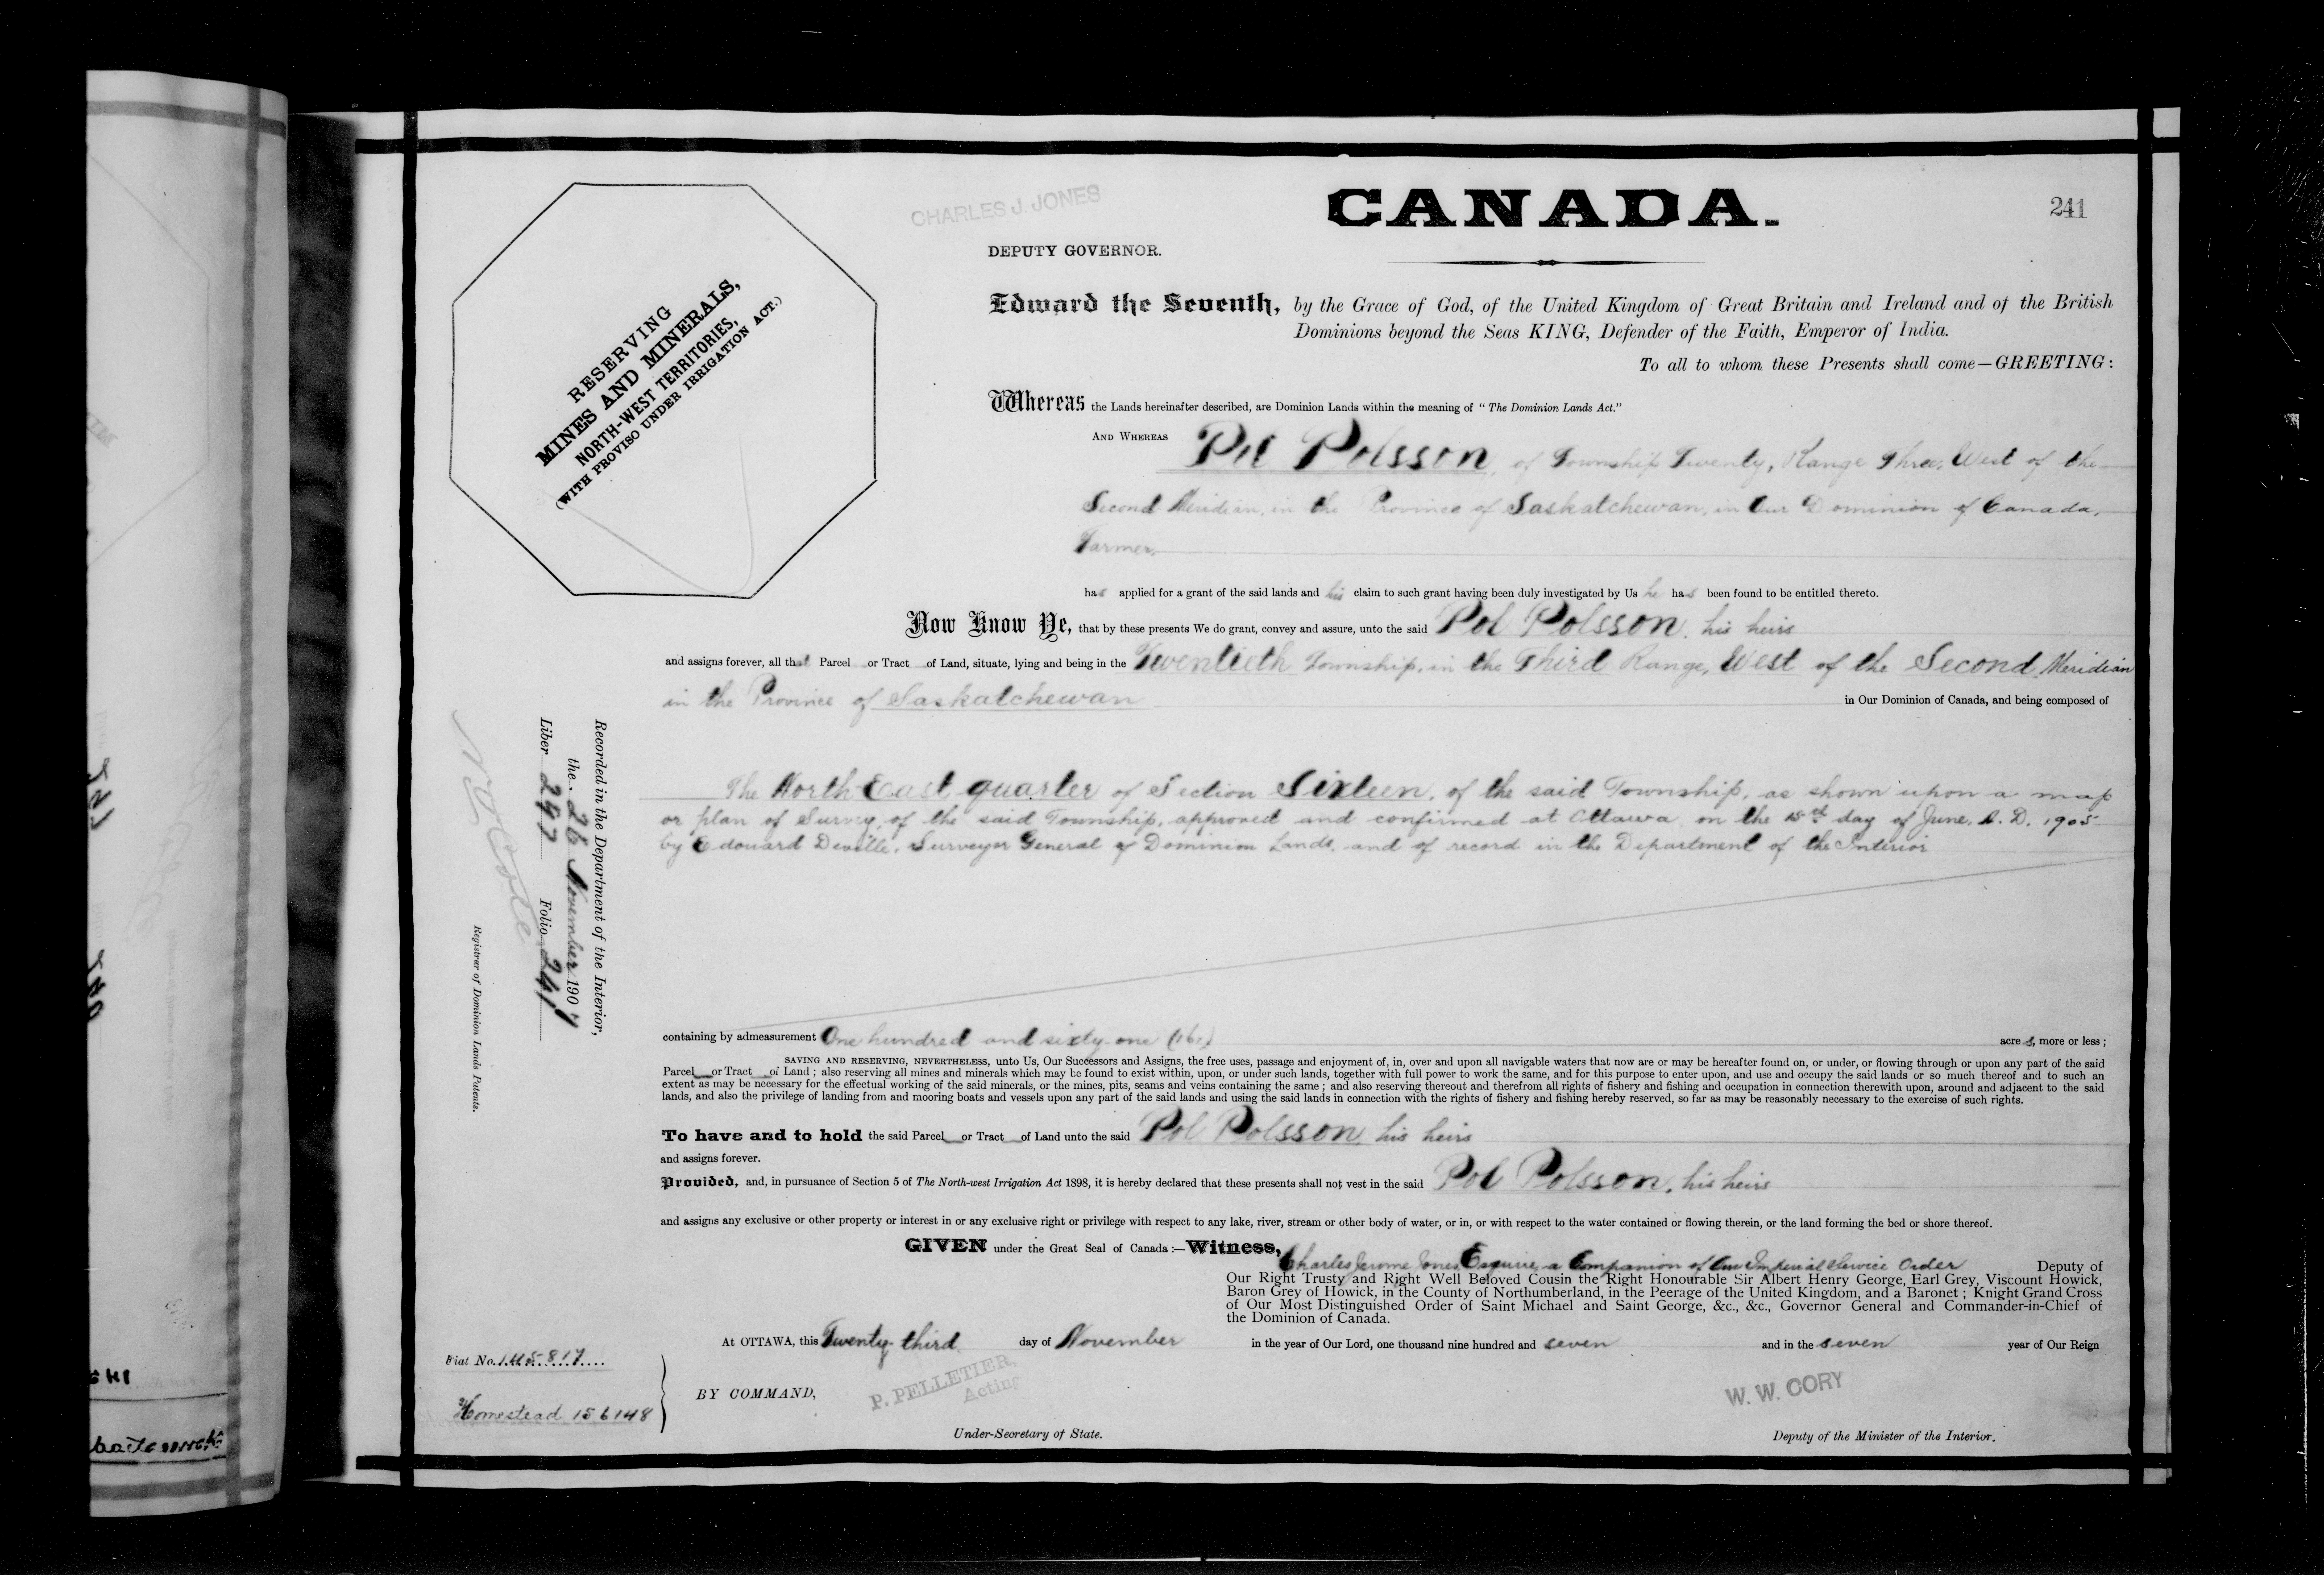 CANADA.
241
CHARLES J. JONES
DEPUTY GOVERNOR.
RESERVING
MINES AND MINERALS,
NORTH-WEST TERRITORIES,
(WITH PROVISO UNDER IRRIGATION ACT.)
Edward the Seventh, by the Grace of God, of the United Kingdom of Great Britain and Ireland and of the British
Dominions beyond the Seas KING, Defender of the Faith, Emperor of India.
To all to whom these Presents shall come—GREETING:
Whereas the Lands hereinafter described, are Dominion Lands within the meaning of "The Dominion Lands Act."
AND WHEREAS Pol Polsson, of Township Twenty, Range Three, West of the
Second Meridian, in the Province of Saskatchewan, in Our Dominion of Canada,
Farmer,
has applied for a grant of the said lands and his claim to such grant having been duly investigated by Us he has been found to be entitled thereto.
Now Know Ye, that by these presents We do grant, convey and assure, unto the said Pol Polsson, his heirs
and assigns forever, all that Parcel or Tract of Land, situate, lying and being in the Twentieth Township, in the Third Range, West of the Second Meridian
in the Province of Saskatchewan in Our Dominion of Canada, and being composed of
The North East quarter of Section Sixteen, of the said Township, as shown upon a map
or plan of Survey, of the said Township, approved and confirmed at Ottawa, on the 15th day of June, A. D. 1905
by Edouard Deville, Surveyor General of Dominion Lands, and of record in the Department of the Interior
Recorded in the Department of the Interior,
the 26 November 1907
Liber 297 Folio 241
Registrar of Dominion Lands Patents.
containing by admeasurement One hundred and sixty-one (161) acres, more or less;
SAVING AND RESERVING, NEVERTHELESS, unto Us, Our Successors and Assigns, the free uses, passage and enjoyment of, in, over and upon all navigable waters that now are or may be hereafter found on, or under, or flowing through or upon any part of the said
Parcel or Tract of Land; also reserving all mines and minerals which may be found to exist within, upon, or under such lands, together with full power to work the same, and for this purpose to enter upon, and use and occupy the said lands or so much thereof and to such an
extent as may be necessary for the effectual working of the said minerals, or the mines, pits, seams and veins containing the same; and also reserving thereout and therefrom all rights of fishery and fishing and occupation in connection therewith upon, around and adjacent to the said
lands, and also the privilege of landing from and mooring boats and vessels upon any part of the said lands and using the said lands in connection with the rights of fishery and fishing hereby reserved, so far as may be reasonably necessary to the exercise of such rights.
To have and to hold the said Parcel or Tract of Land unto the said Pol Polsson, his heirs
and assigns forever.
Provided, and, in pursuance of Section 5 of The North-west Irrigation Act 1898, it is hereby declared that these presents shall not vest in the said Pol Polsson, his heirs
and assigns any exclusive or other property or interest in or any exclusive right or privilege with respect to any lake, river, stream or other body of water, or in, or with respect to the water contained or flowing therein, or the land forming the bed or shore thereof.
GIVEN under the Great Seal of Canada:—Witness, Charles Jerome Jones, Esquire, a Companion of Our Imperial Service Order Deputy of
Our Right Trusty and Right Well Beloved Cousin the Right Honourable Sir Albert Henry George, Earl Grey, Viscount Howick,
Baron Grey of Howick, in the County of Northumberland, in the Peerage of the United Kingdom, and a Baronet; Knight Grand Cross
of Our Most Distinguished Order of Saint Michael and Saint George, &c., &c., Governor General and Commander-in-Chief of
the Dominion of Canada.
At OTTAWA, this Twenty-third day of November in the year of Our Lord, one thousand nine hundred and seven and in the seven year of Our Reign
Fiat No. 145817
Homestead 156148
BY COMMAND,
P. PELLETIER,
Acting
Under-Secretary of State.
W. W. CORY
Deputy of the Minister of the Interior.